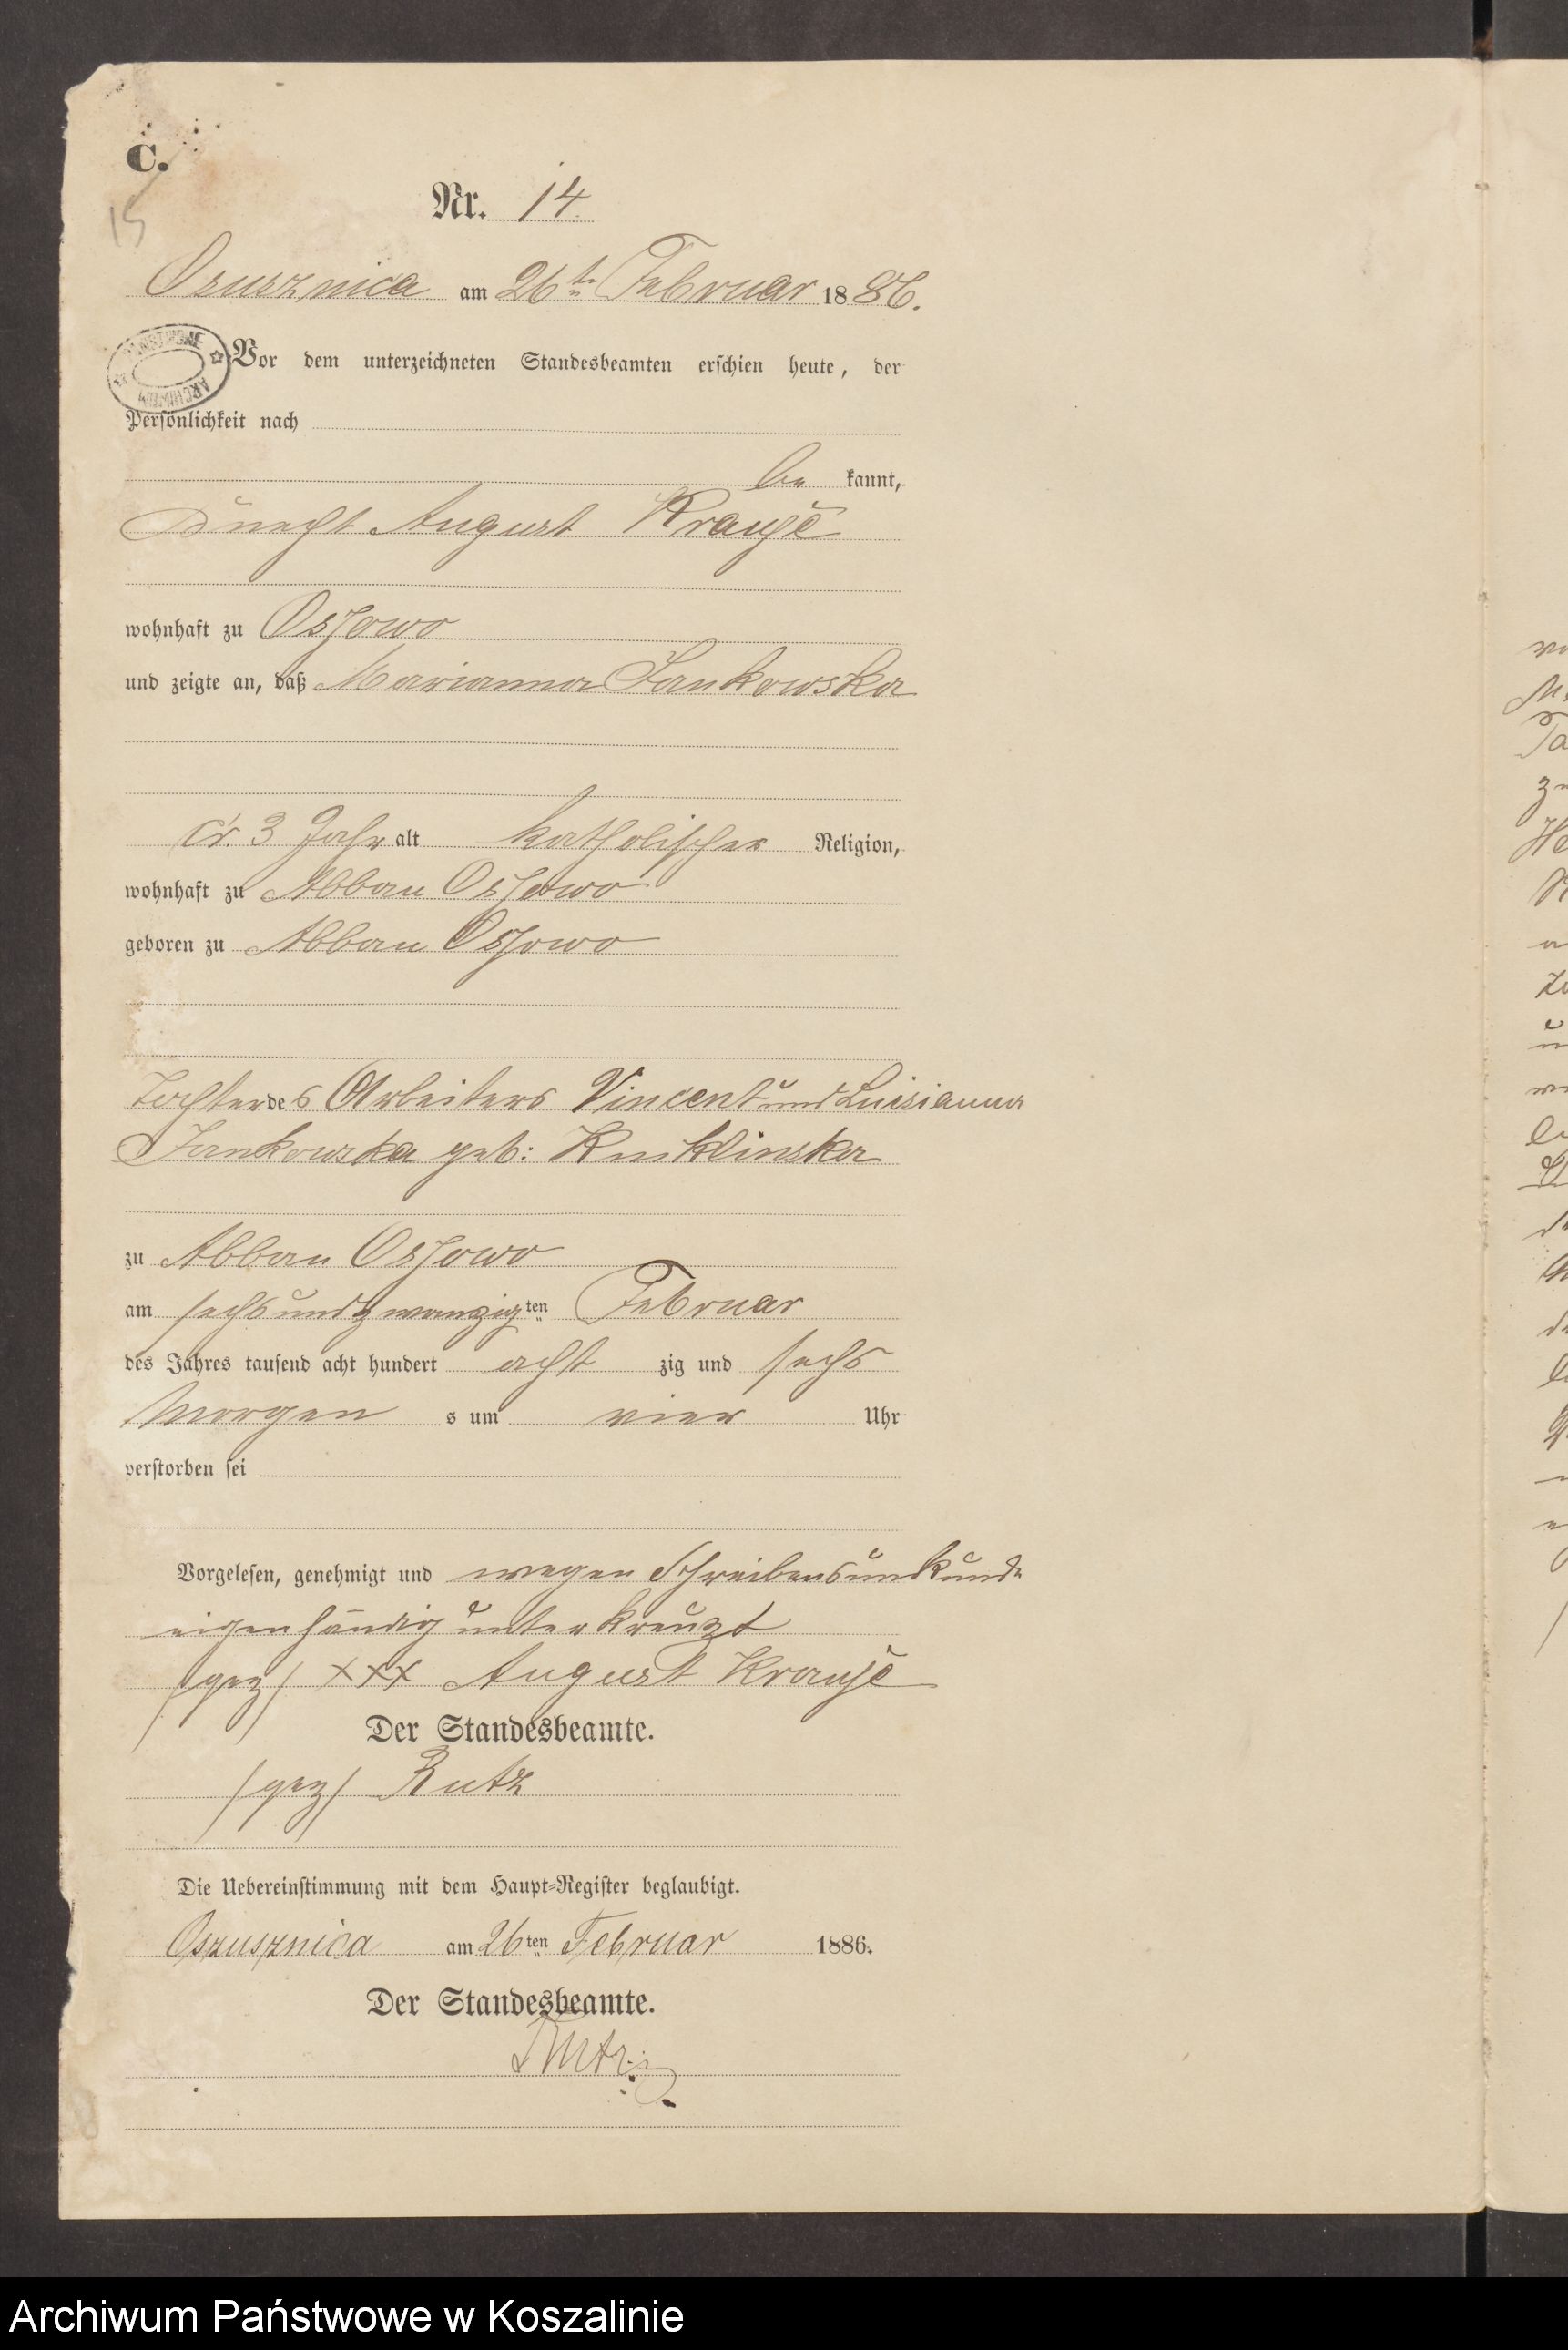 C.
15
Nr. 14.
Osusznica am 26te Februar 1886.
Vor dem unterzeichneten Standesbeamten erschien heute, der
Persönlichkeit nach
be kannt,
Knecht August Krause
wohnhaft zu Ossowo
und zeigte an, daß Marianna Jankowska
cr. 3 Jahr alt katholischer Religion,
wohnhaft zu Abbau Ossowo
geboren zu Abbau Ossowo
Tochter des Arbeiters Vincent und
Jankowska geb:
zu Abbau Ossowo
am sechsundzwanzigten Februar
des Jahres tausend acht hundert acht zig und sechs
Morgen s um vier Uhr
verstorben sei
Vorgelesen, genehmigt und wegen Schreibensunkunde
eigenhändig unterkreuzt
/gez/ XXX August Krause
Der Standesbeamte.
/gez/ Rutz
Die Uebereinstimmung mit dem Haupt-Register beglaubigt.
Oszusznica am 26ten Februar 1886.
Der Standesbeamte.
Rutz
Archiwum Państwowe w Koszalinie